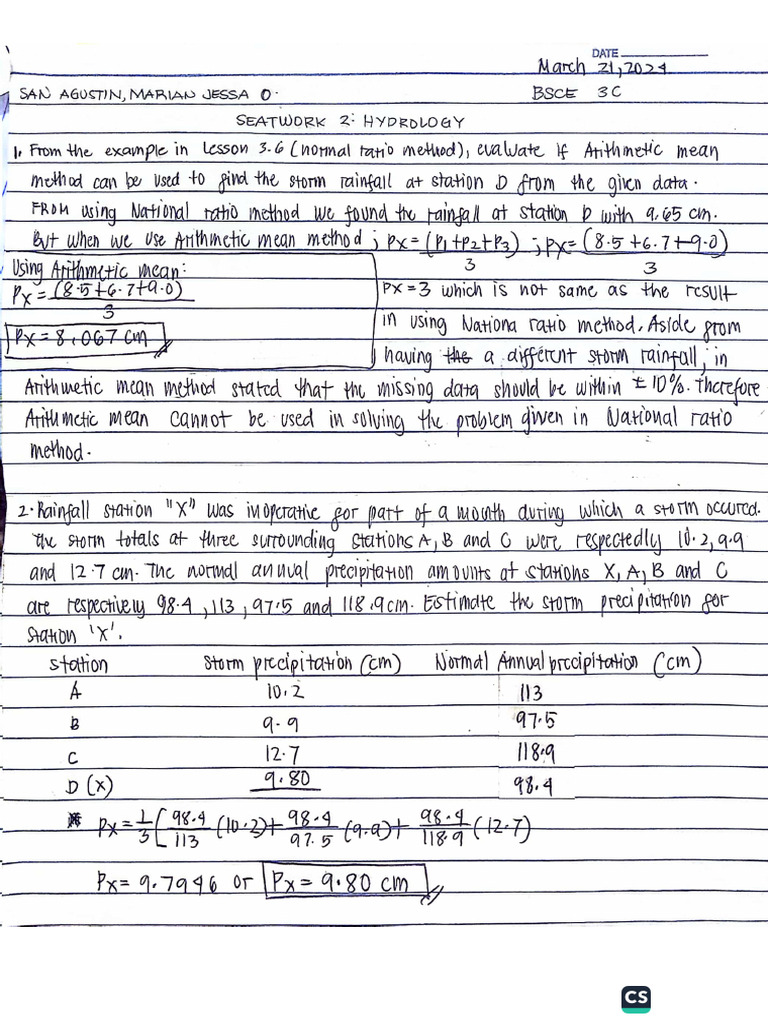 DATE
March 21, 2024
SAN AGUSTIN, MARIAN JESSA O. BSCE 3C
SEATWORK 2: HYDROLOGY
1. From the example in Lesson 3.6 (normal ratio method), evaluate if Arithmetic mean
method can be used to find the storm rainfall at station D from the given data.
FROM using National ratio method we found the rainfall at station D with 9.65 cm.
But when we use Arithmetic mean method ; Px = (P1+P2+P3) / 3 ; Px = (8.5+6.7+9.0) / 3
Using Arithmetic mean:
Px = (8.5+6.7+9.0) / 3
Px = 8.067 cm
Px = 3 which is not same as the result
in using Nationa ratio method. Aside from
having the a different storm rainfall, in
Arithmetic mean method stated that the missing data should be within ± 10%. Therefore
Arithmetic mean cannot be used in solving the problem given in National ratio
method.
2. Rainfall station "X" was inoperative for part of a month during which a storm occured.
The storm totals at three surrounding stations A, B and C were respectedly 10.2, 9.9
and 12.7 cm. The normal annual precipitation amounts at stations X, A, B and C
are respectively 98.4, 113, 97.5 and 118.9 cm. Estimate the storm precipitation for
station 'X'.
station Storm precipitation (cm) Normal Annual precipitation (cm)
A 10.2 113
B 9.9 97.5
C 12.7 118.9
D (X) 9.80 98.4
* Px = 1/3 [ 98.4/113 (10.2) + 98.4/97.5 (9.9) + 98.4/118.9 (12.7)
Px = 9.7946 or Px = 9.80 cm
CS